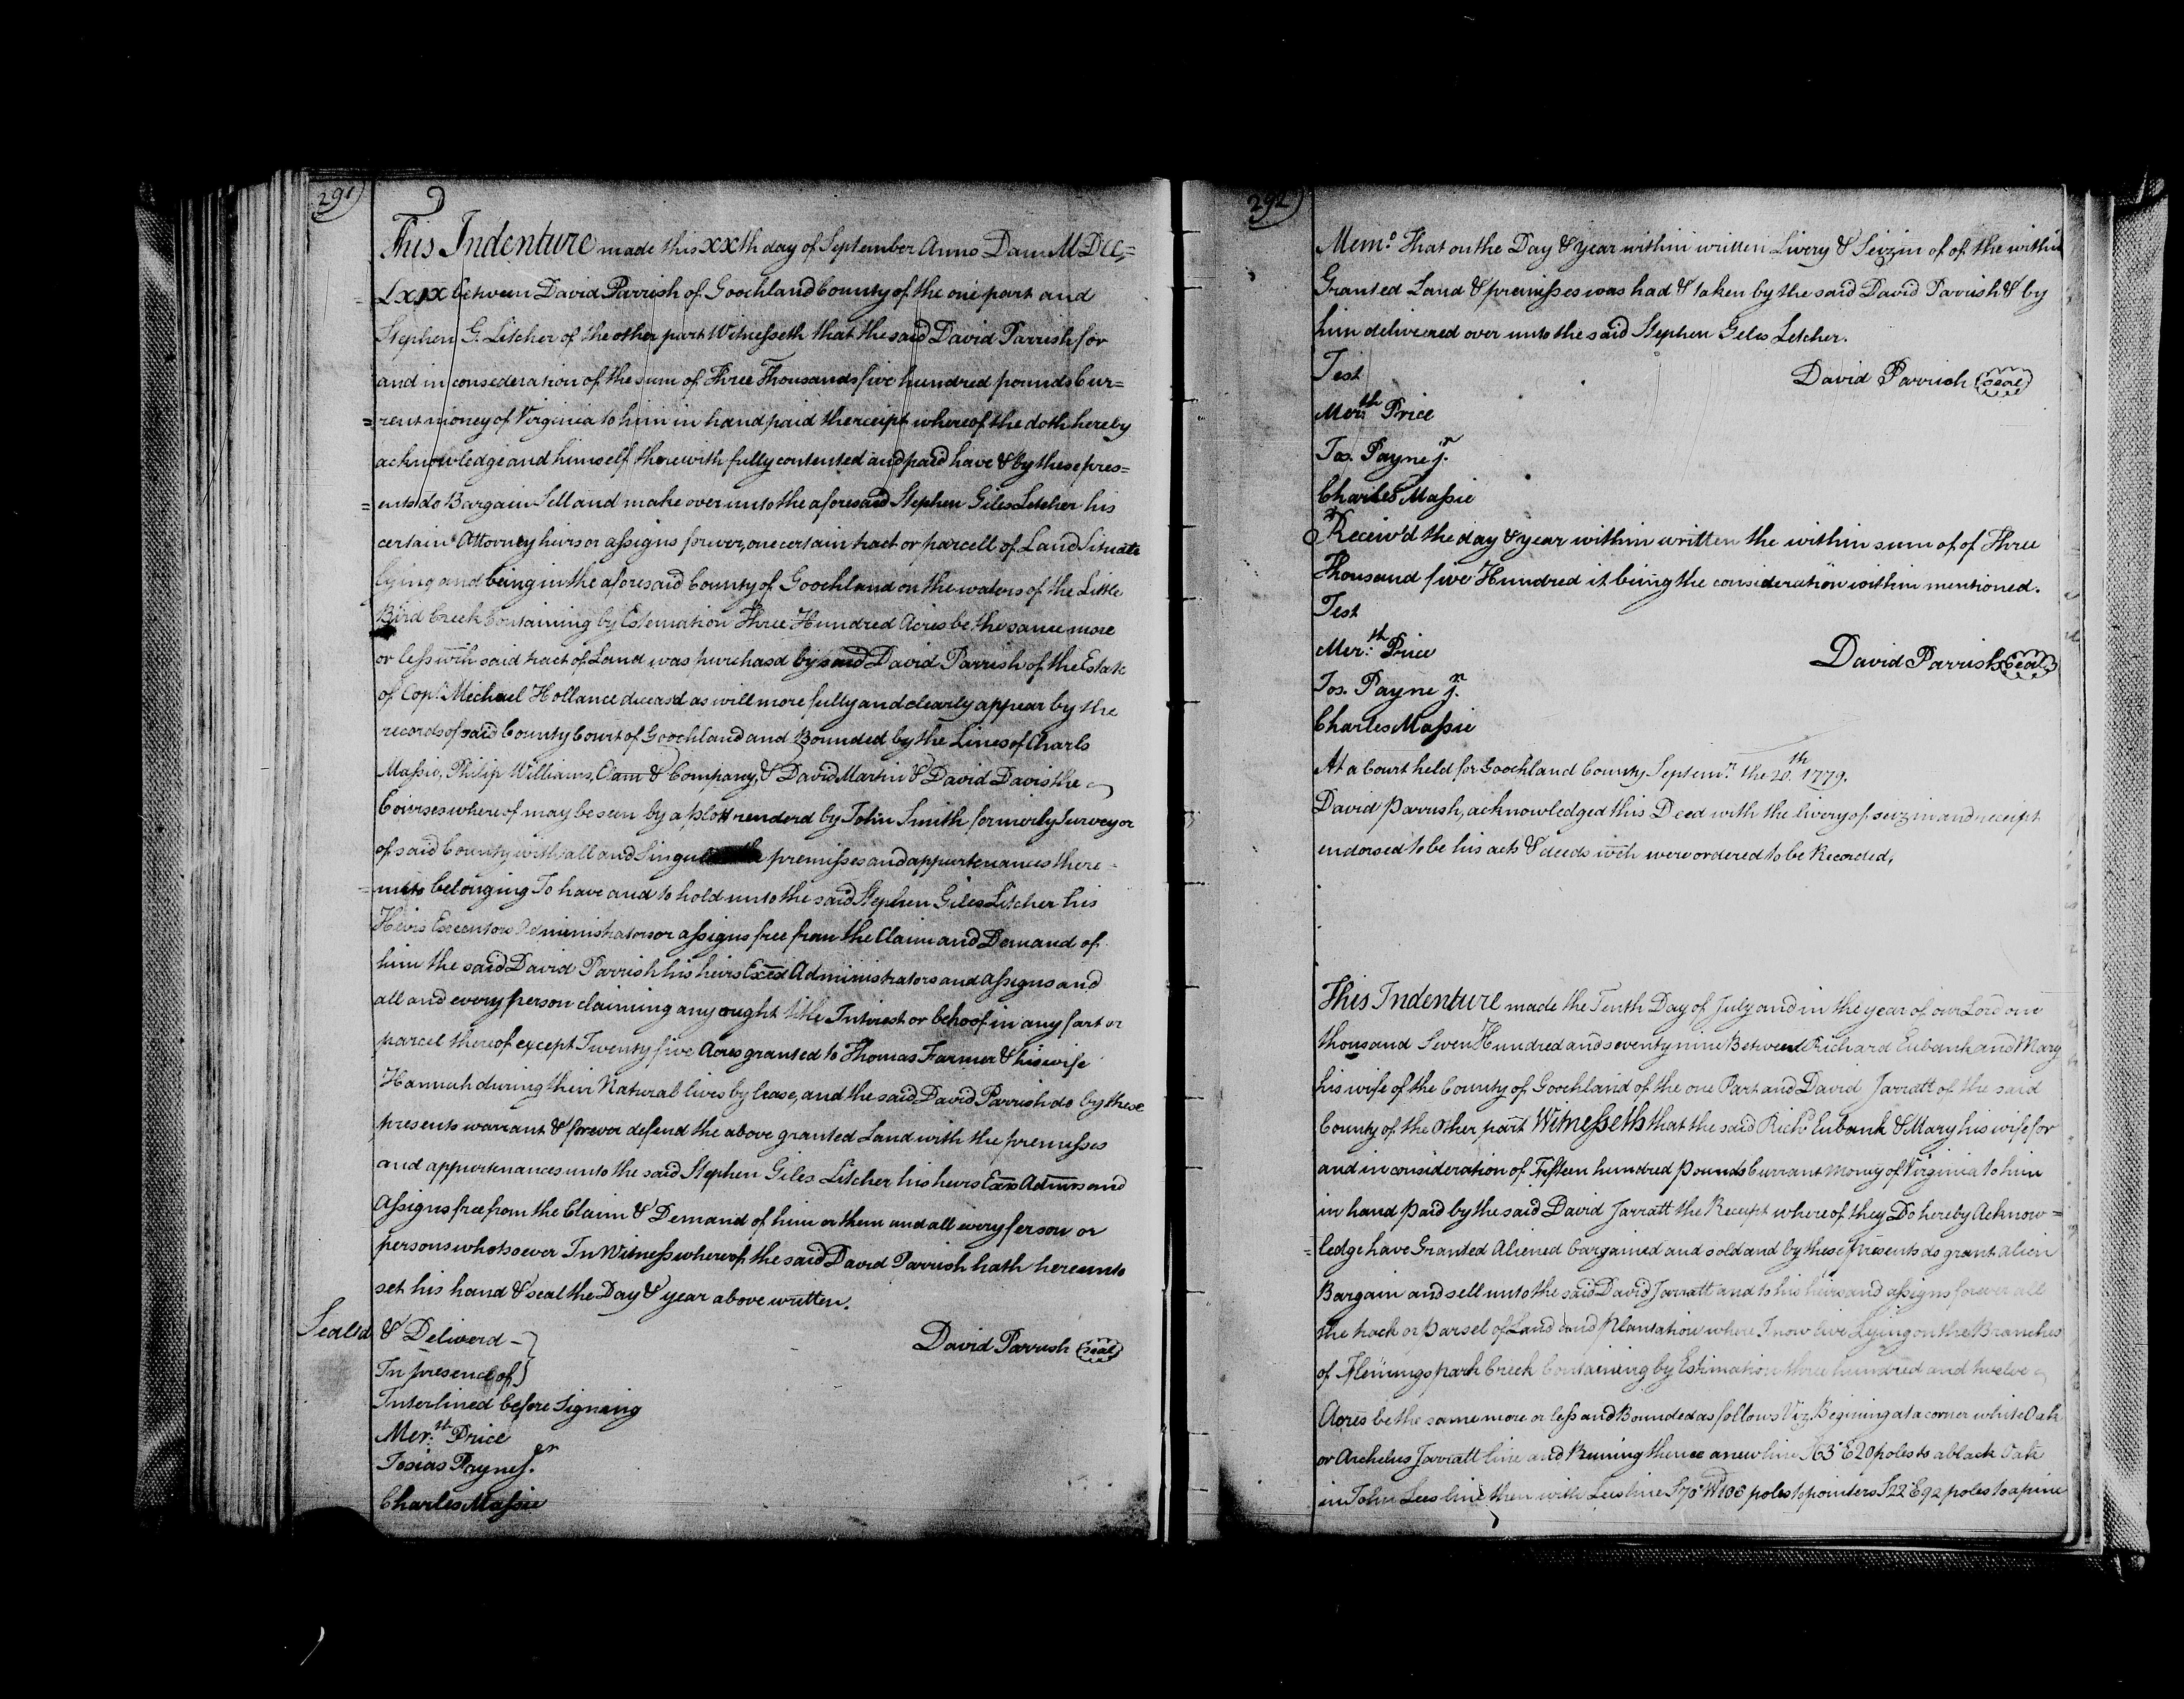 291
This Indenture made this XXth day of September Anno Dom MDCC,=
LXXIX between David Parrish of Goochland County of the one part and
Stephen G. Litcher of the other part Witnesseth that the said David Parrish for
and in consideration of the sum of Three Thousands five hundred pounds Cur=
=rent money of Virginia to him in hand paid the receipt whereof the doth hereby
acknowledge and himself therewith fully contented and paid have & by these pres=
=ents do Bargain Sell and make over unto the aforesaid Stephen Giles Letcher his
certain Attorney heirs or assigns forever, one certain tract or parcell of Land Situate
lying and being in the aforesaid County of Goochland on the waters of the Little
Bird Creek Containing by Estemation Three Hundred Acres be the same more
or less wch said tract of Land was purchasd by said David Parrish of the Estate
of Capt. Michael Hollance deceasd as will more fully and clearly appear by the
records of said County Court of Goochland and Bounded by the Lines of Charls
Massie, Philip Williams, Clam & Company, & David Martin & David Davis the
Courses whereof may be seen by a plott renderd by John Smith formerly Surveyor
of said County with all and Singu premisses and appurtenances there
=unto belonging To have and to hold unto the said Stephen Giles Litcher his
Heirs Executors Administrators or assigns free from the Claim and Demand of
him the said David Parrish his heirs Exed Administrators and assigns and
all and every person claiming any ought title Interest or behoof in any part or
parcel thereof except Twenty five Acres granted to Thomas Farmer & his wife
Hannah during their Natural lives by lease, and the said David Parrish do by these
presents warrant & forever defend the above granted Land with the premisses
and appurtenances unto the said Stephen Giles Litcher his heirs Exrs Admrs and
Assigns free from the Claim & Demand of him or them and all every person or
persons whotsoever In Witness whereof the said David Parrish hath hereunto
set his hand & seal the Day & year above written.
Sealed & Deliverd
David Parrish (Seal)
In presence of
Interlined before Signing
Mer.th Price
Josias Payne Jr.
Charles Massie
292
Memo. That on the Day & year within written Livery & Seizin of of the within
Granted Land & premisses was had & taken by the said David Parrish & by
him delivered over unto the said Stephen Geles Letcher.
Test
David Parrish (Seal)
Mer.th Price
Jos. Payne Jr.
Charles Massie
Receiv'd the day & year within written the within sum of of Three
Thousand five Hundred it being the consideration within mentioned.
Test
Mer.th Price
David Parrish (Seal)
Jos. Payne Jr.
Charles Massie
At a Court held for Goochland County Septemr. the 20th 1779.
David Parrish, acknowledged this Deed with the livery of seizin and receipt
endorsed to be his acts & deeds wch were ordered to be Recorded,
This Indenture made the Tenth Day of July and in the year of our Lord one
thousand Seven Hundred and seventy nine Between Richard Eubank and Mary
his wife of the County of Goochland of the one Part and David Jarratt of the said
County of the Other part Witnesseth that the said Richd. Eubank & Mary his wife for
and in consideration of Fifteen hundred pounds Currant Money of Virginia to him
in hand paid by the said David Jarratt the Receipt where of they Do hereby Acknow=
=ledge have Granted Aliened bargained and sold and by these presents do grant alien
Bargain and sell unto the said David Jarratt and to his heirs and assigns forever all
the track or parsel of Land and Plantation where I now live Lying on the Branches
of Flemings park Creek Containing by Estimation three hundred and twelve
Acres be the same more or less and Bounded as follows Viz. Begining at a corner white Oak
or Archelus Jarratt line and Runing thence a new line S63°E 20 poles to a black Oak
in John Lees line then with Lees line S70°W 106 poles to pointers S22°E 92 poles to a pine